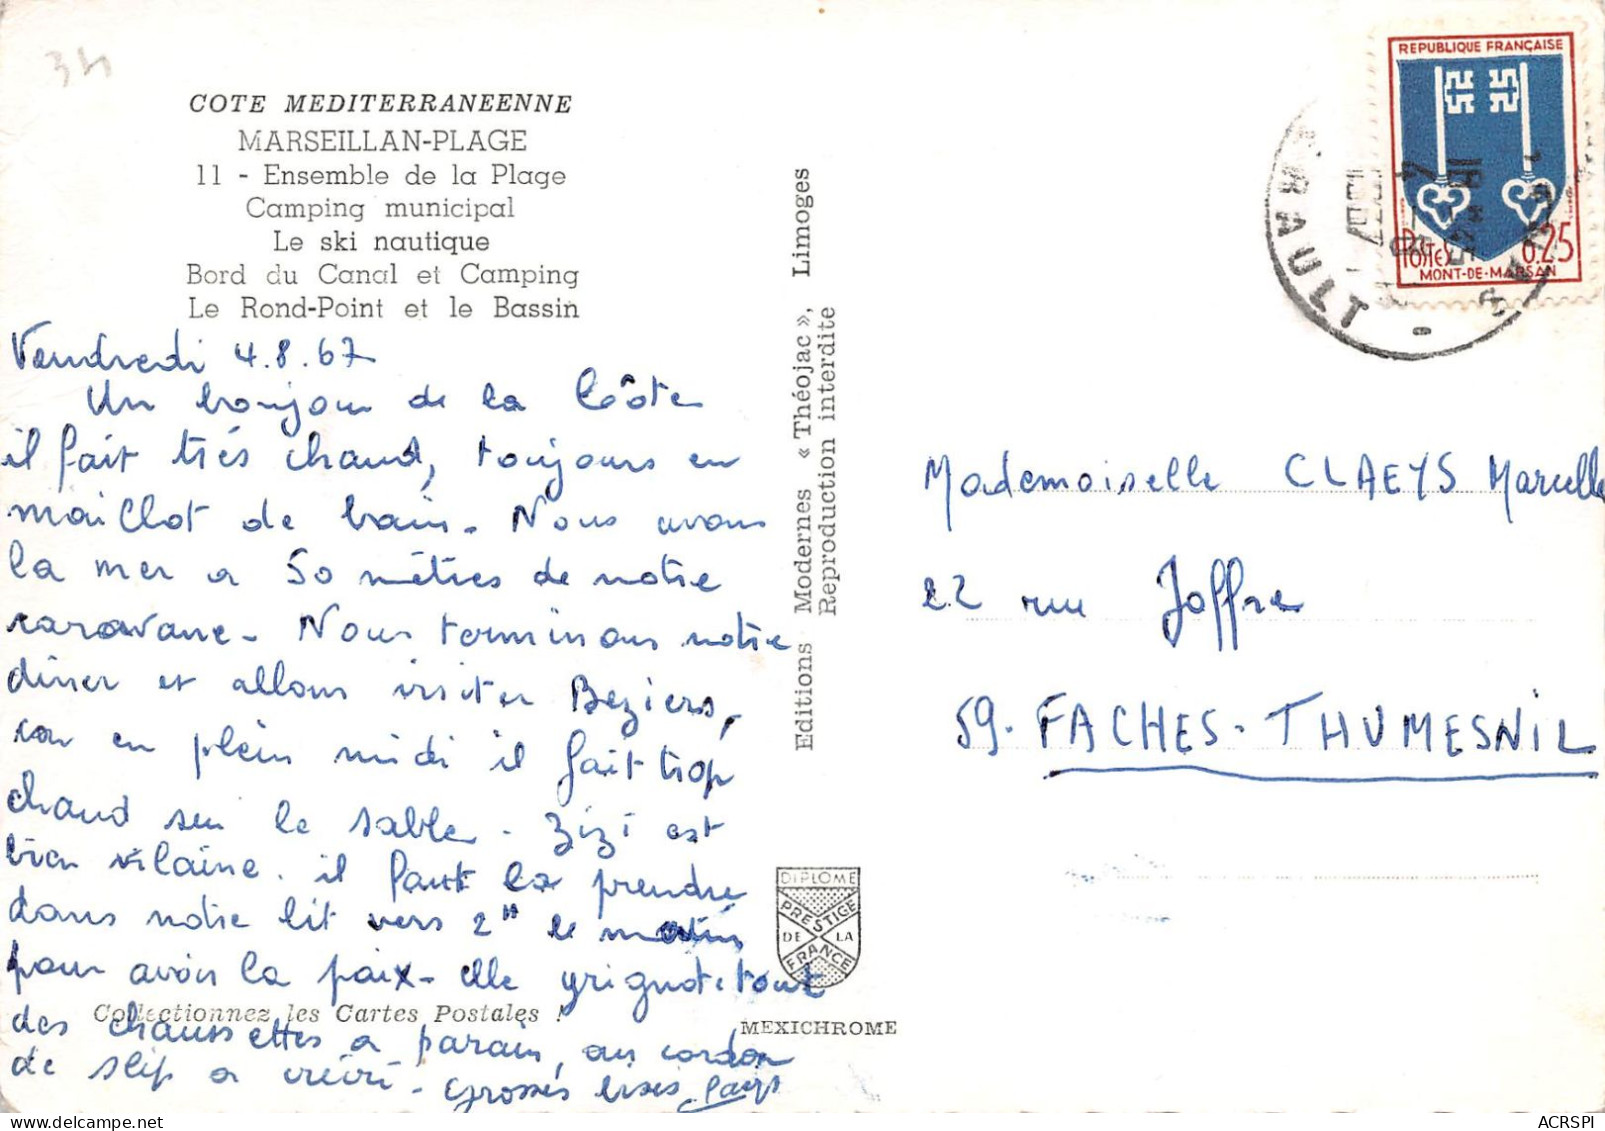 34
COTE MEDITERRANEENNE
MARSEILLAN-PLAGE
11 - Ensemble de la Plage
Camping municipal
Le ski nautique
Bord du Canal et Camping
Le Rond-Point et le Bassin
Vendredi 4.8.67
Un bonjour de la Côte
il fait très chaud, toujours en
maillot de bain. Nous avons
la mer a 50 mètres de notre
caravane. Nous terminons notre
diner et allons visiter Beziers,
car en plein midi il fait trop
chaud sur le sable. Zizi est
bien vilaine. il faut la prendre
dans notre lit vers 2H le matin
pour avoir la paix. elle grignote tout
des chaussettes a parain, au cordon
de slip a
Grosses bises
Collectionnez les Cartes Postales !
Editions Modernes « Théojac », Limoges
Reproduction interdite
DIPLOME
PRESTIGE
DE LA
FRANCE
MEXICHROME
REPUBLIQUE FRANÇAISE
POSTES 0.25
MONT-DE-MARSAN
HERAULT
Mademoiselle CLAEYS Marcelle
22 rue Joffre
59. FACHES-THUMESNIL
ACRSPI